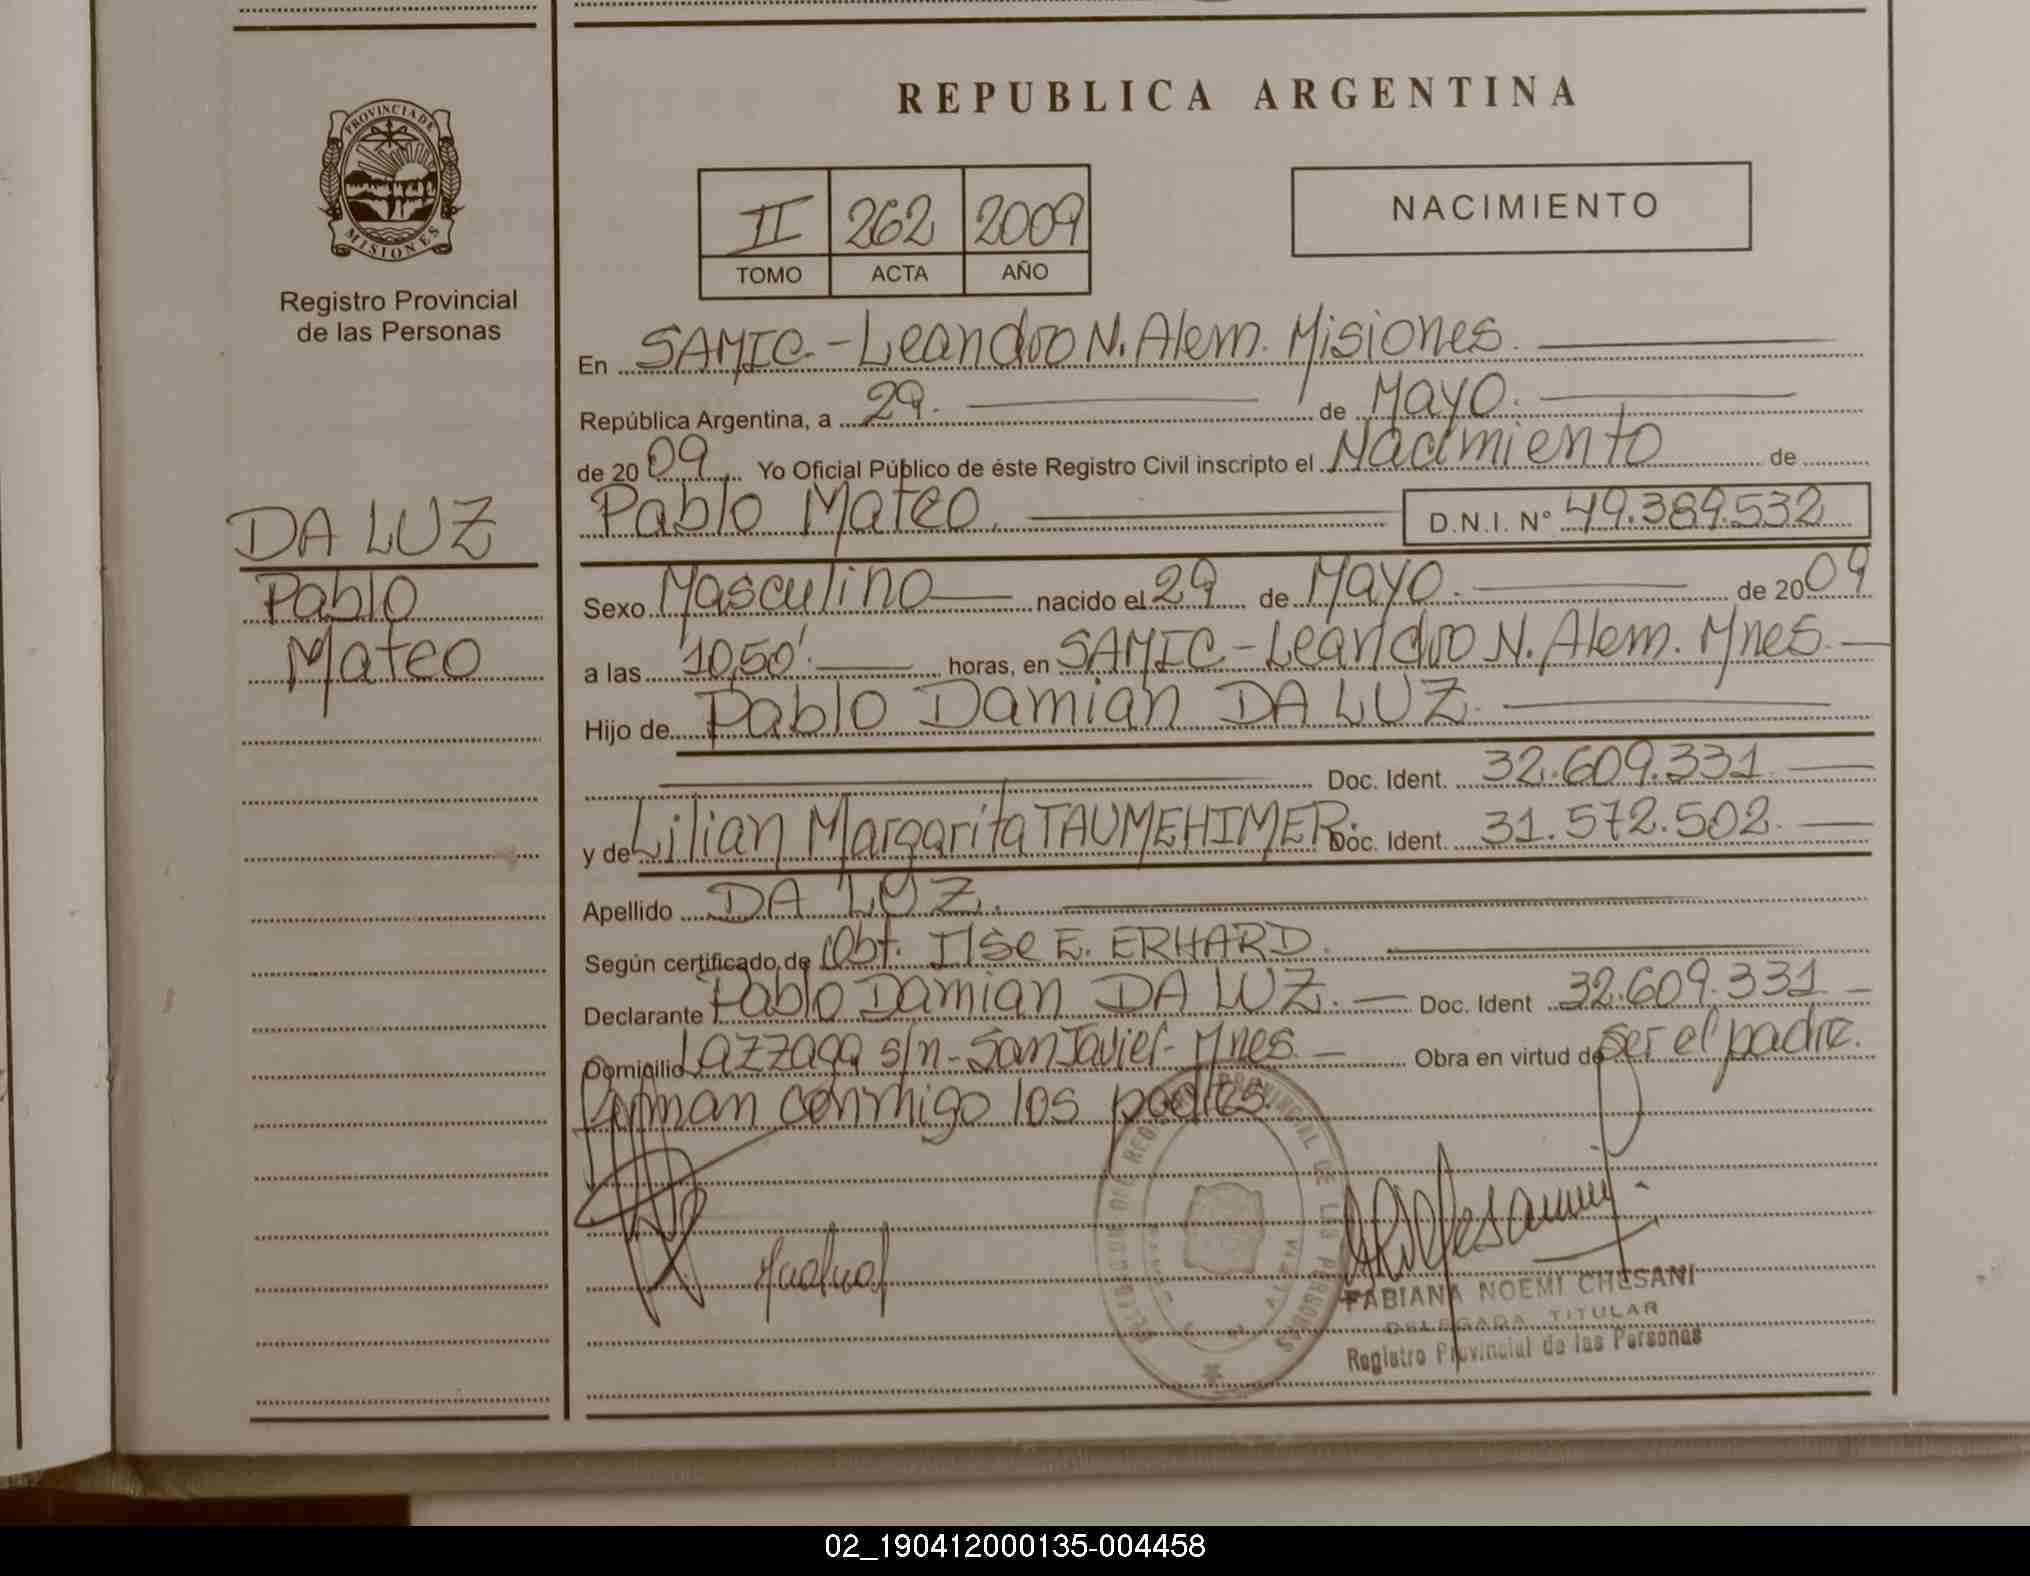 REPUBLICA ARGENTINA
PROVINCIA DE
MISIONES
Registro Provincial
de las Personas
II 262 2009
TOMO ACTA AÑO
NACIMIENTO
En SAMIC.-Leandro N. Alem. Misiones.
República Argentina, a 29. de Mayo.
de 2009 Yo Oficial Público de éste Registro Civil inscripto el Nacimiento de
Pablo Mateo. D.N.I. Nº 49.389.532
DA LUZ
Pablo
Mateo
Sexo Masculino nacido el 29 de Mayo. de 2009
a las 10,50'. horas, en SAMIC-Leandro N. Alem. Mnes.
Hijo de Pablo Damian DA LUZ.
Doc. Ident. 32.609.331
y de Lilian Margarita TAUMEHIMER. Doc. Ident. 31.572.502.
Apellido DA LUZ.
Según certificado de Obt. Ilse E. ERHARD.
Declarante Pablo Damian DA LUZ. Doc. Ident 32.609.331
Domicilio Lazzaga s/n-San Javier-Mnes. Obra en virtud de ser el padre.
Firman conmigo los padres.
FABIANA NOEMI CHESANI
DELEGADA TITULAR
Registro Provincial de las Personas
02_190412000135-004458